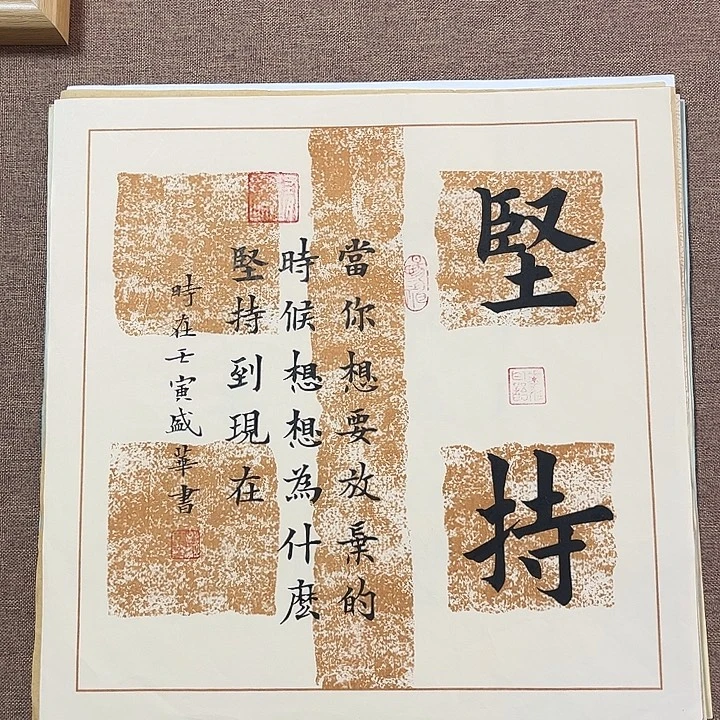 堅持
當你想要放棄的
時候想想為什麼
堅持到現在
時在壬寅盛華書